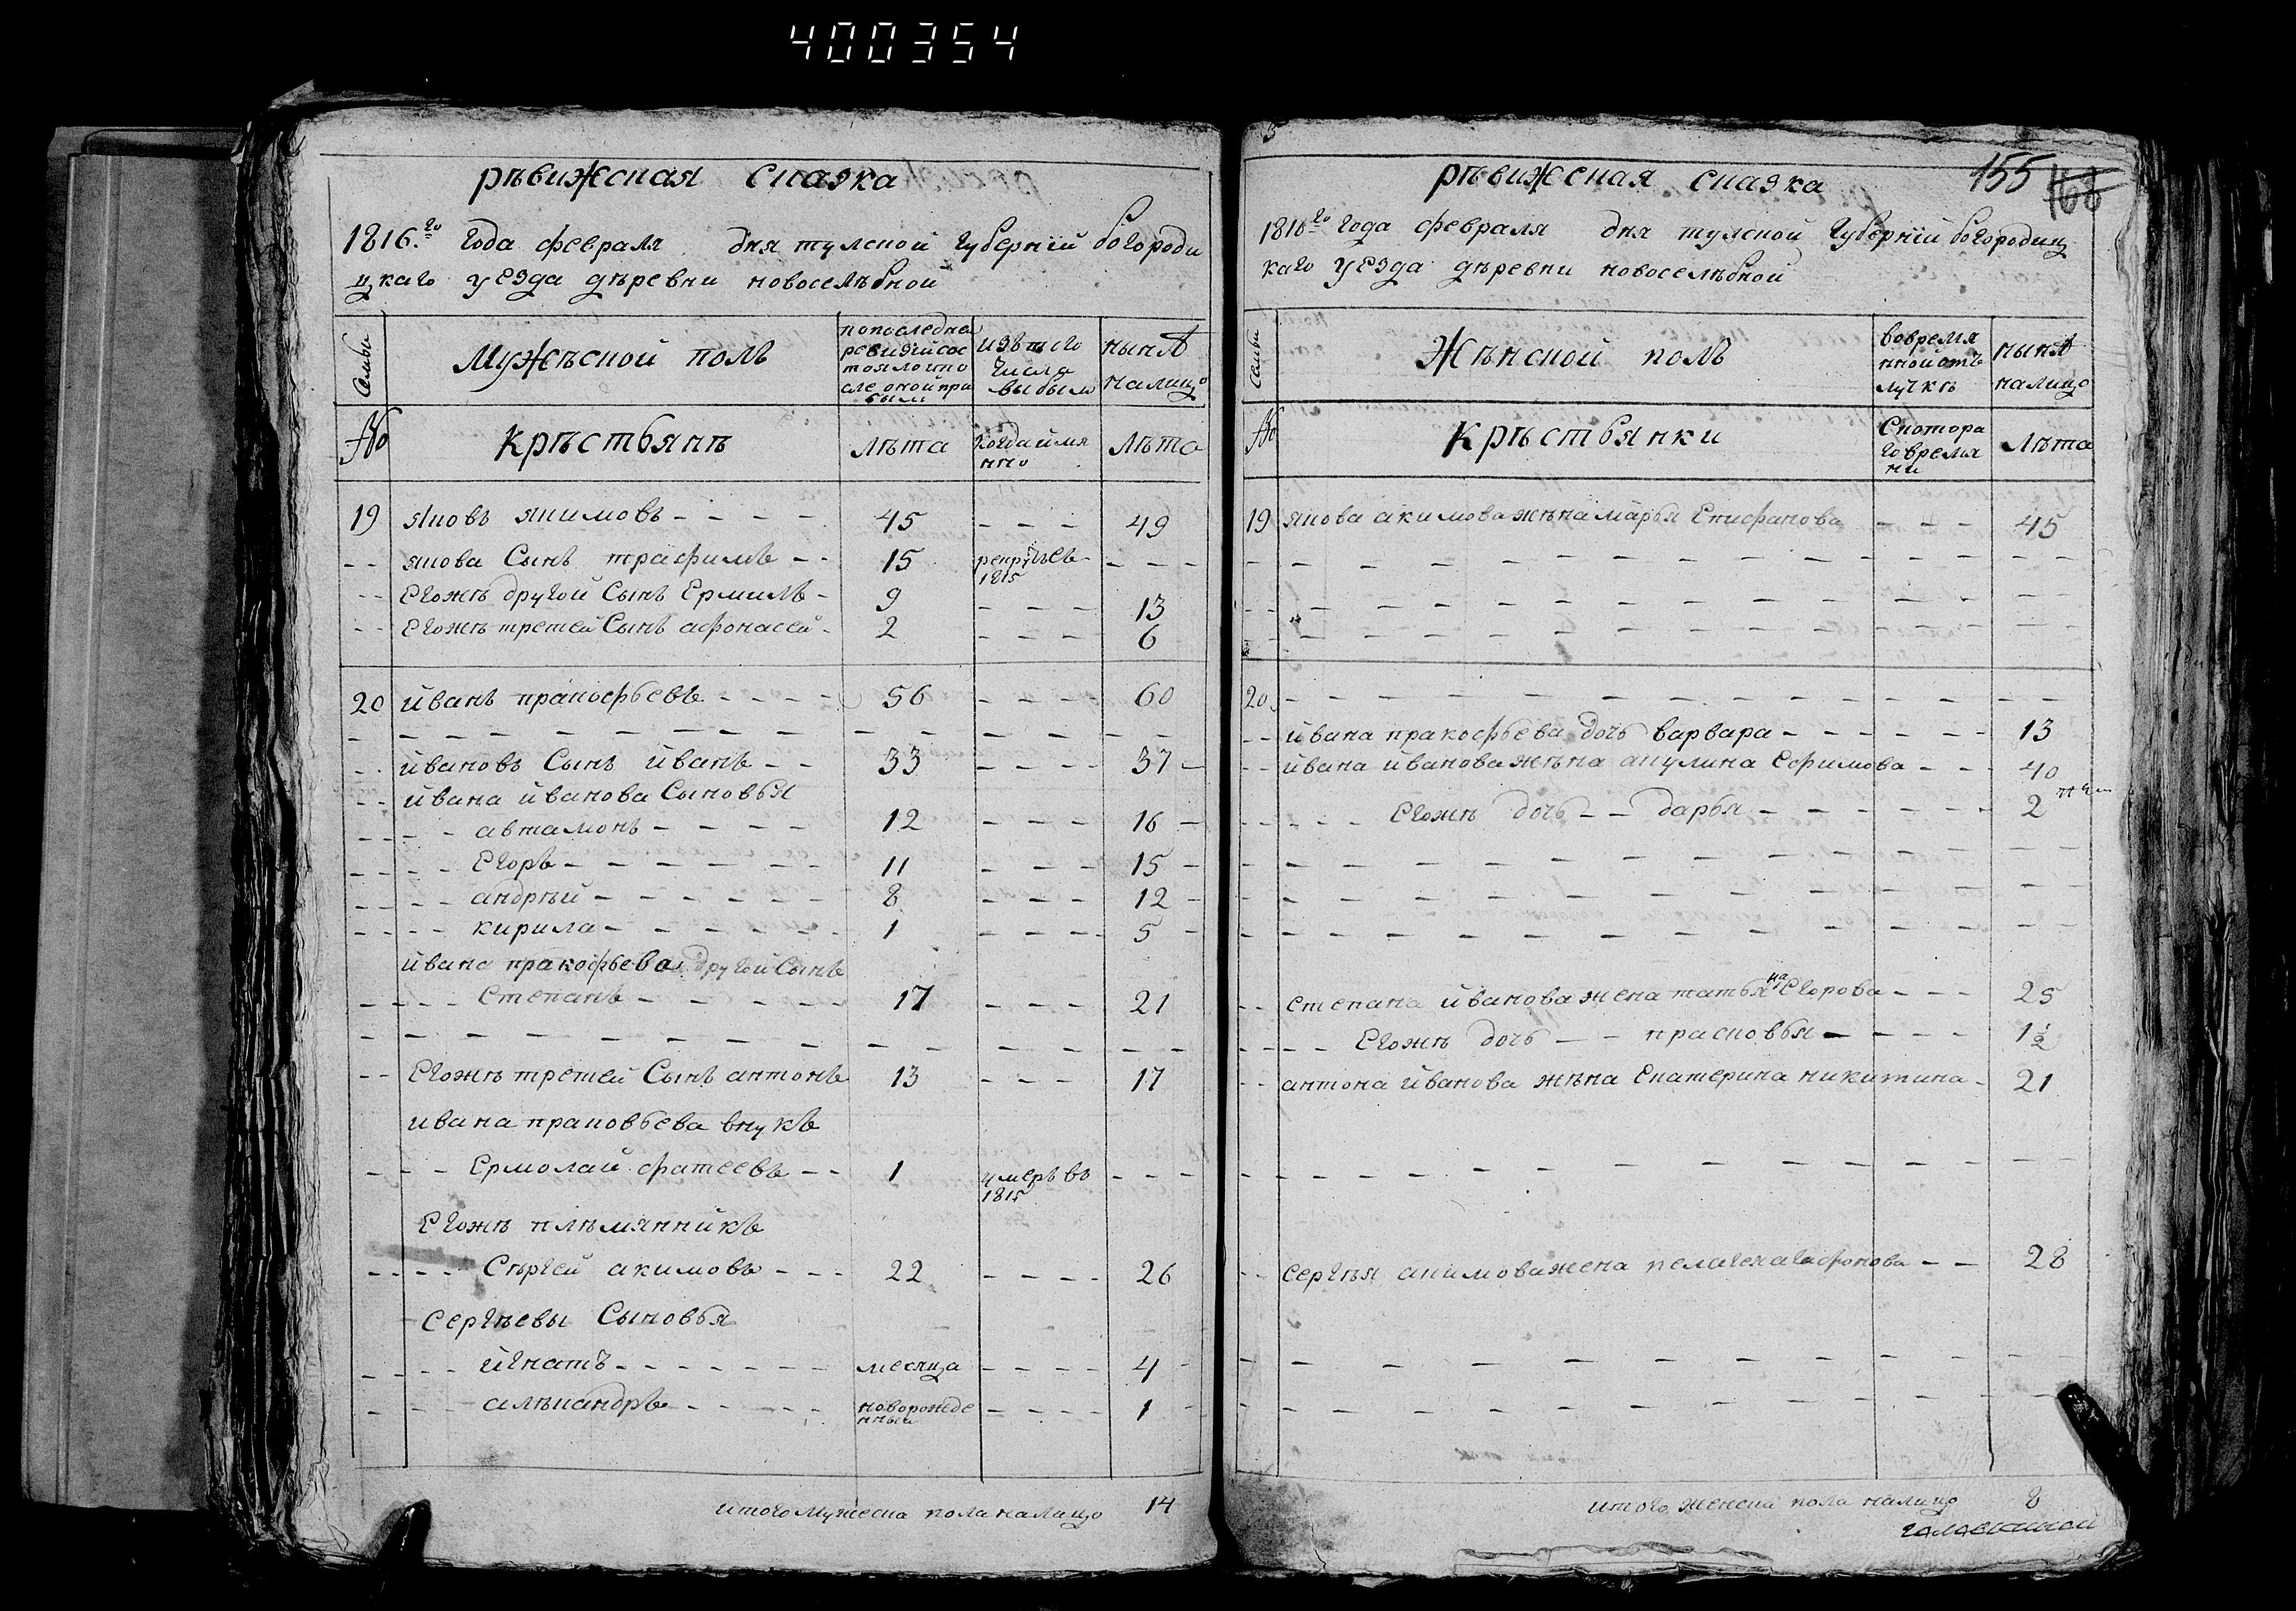 400354
рѣвижская сказка
1816.го года февраля дня тулской губернїи богороди
цкаго уезда дѣревни новоселѣбной
Самьи
Мужѣской полъ
попоследнеи
ревизїи сос
тояло ипо
сле оной при
были
изътого
числа
выбыло
нынѣ
налицо
№
крѣстьянѣ
лѣта
когда имя
нно
лѣта
19 яковъ якимовъ - - - - 45 - - - 49
- - якова Сынъ трафимъ - - 15 рекрутъсъ - - - -
1815
- - Егожъ другой Сынъ Ермилъ - 9 - - - 13
- - Егожъ третей Сынъ афонасей - 2 - - - 6
20 йванъ пракофьевъ - - - - 56 - - - 60
- - йвановъ Сынъ йванъ - - 33 - - - - 37 -
- - йвана йванова Сыновья
- - - - автамонъ - - - - - 12 - - - - 16 -
- - - - Егоръ - - - - - - - 11 - - - - 15 -
- - - - андрѣй - - - - - - 8 - - - 12 -
- - - - кирила - - - - - - - 1 - - - - 5 -
йвана пракофьева другой Сынъ
- - - - Степанъ - - - - - - 17 - - - 21
- - Егожъ третей Сынъ антонъ 13 - - - 17
ивана праковьева внукъ
- - - Ермолай фатеевъ - - 1 умеръ въ - - -
1815
Егожъ плѣмянникъ
- - - - Сѣргей акимовъ - - - 22 - - - - 26
Сергѣевы Сыновья
- - - - йгнатъ - - - - - - - месяца - - - - 4 -
- - - - алѣкандръ - - - - - новорожде - - - - 1 -
нный
итого мужеска пола налицо 14
3
155 168
рѣвижская сказка
1816го года февраля дня тулской губернїи богородиц
каго уезда дѣревни новоселѣбной
Самьи
Жѣнской полъ
вовремя
нной отъ
лучкѣ
нынѣ
налицо
№
Крѣстьянки
Скотора
го времѧ
ни
лѣта
19 якова акимова жѣна марья Епифанова - - - 45
20
- - йвана пракофьева дочь варвара - - - - - - 13
- - йвана йванова жѣна акулина Ефимова - - - 40
- - - - - Егожъ дочь - - дарья - - - - - - - 2
на
- - степана йванова жена татья Егорова - - - 25
- - - - Егожъ дочь - - прасковья - - - - - 1½
- - антона йванова жѣна Екатерина никитина - 21
- - сергѣя акимова жена пелагея агафонова - - 28
итого женска пола налицо 8